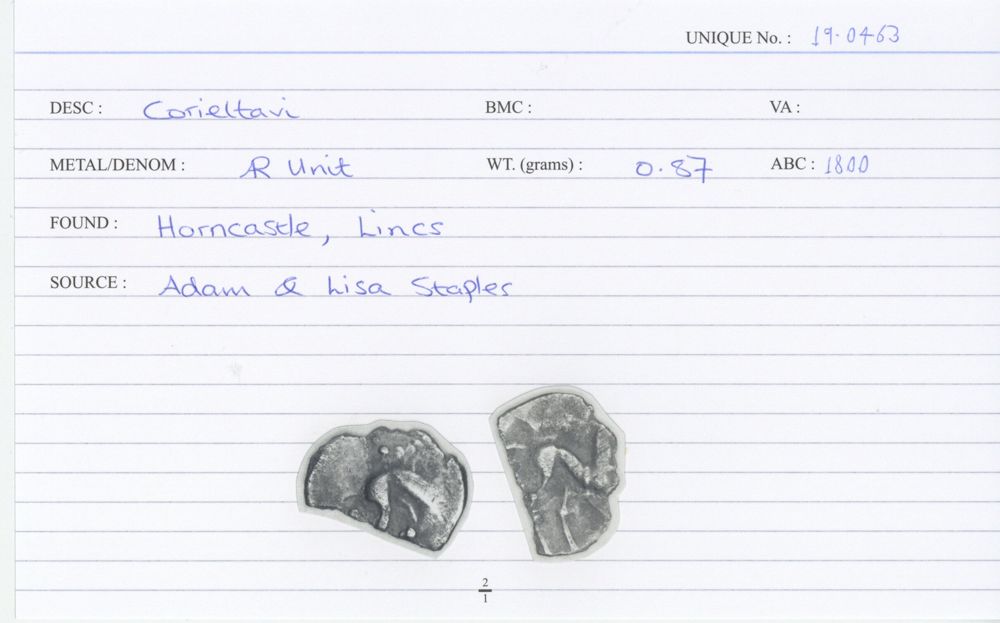 UNIQUE No. : 19.0463
DESC : Corieltavi BMC : VA :
METAL/DENOM : AR Unit WT. (grams) : 0.87 ABC : 1800
FOUND : Horncastle, Lincs
SOURCE : Adam & Lisa Staples
2
1